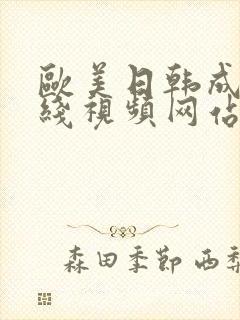 歐美日韩成
綫視頻网佔
森田季節 西